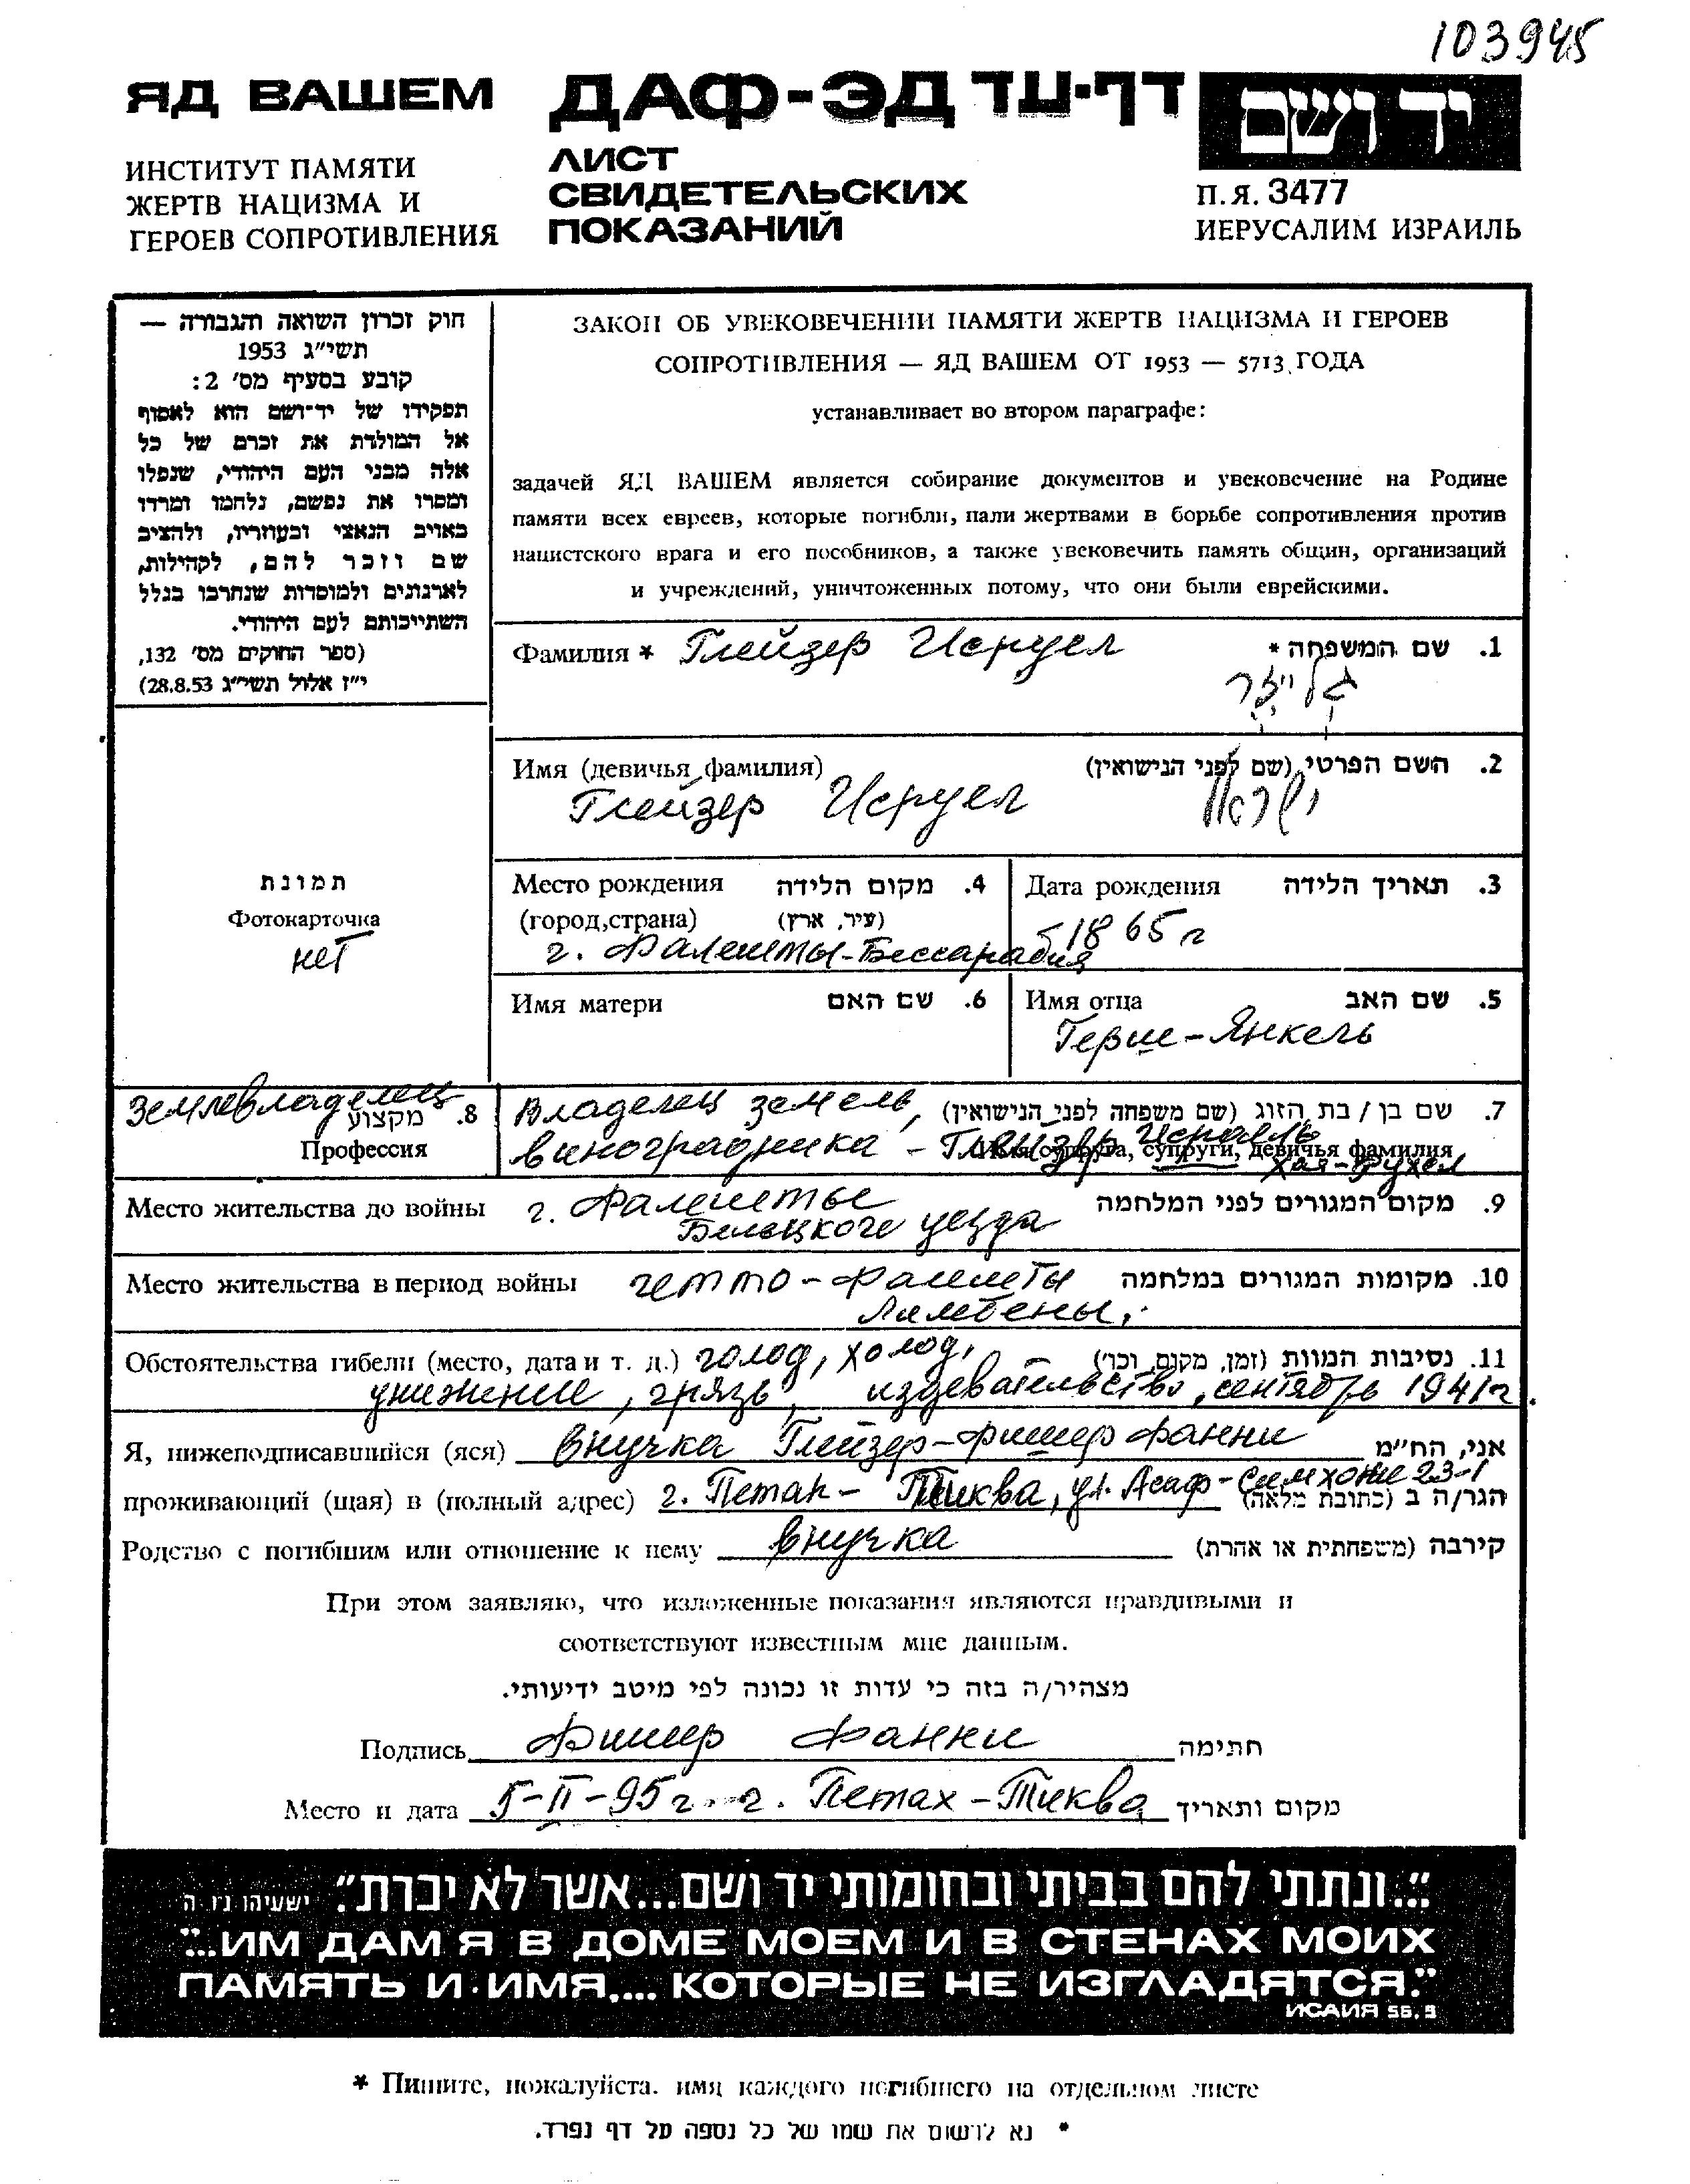 103945
ЯД ВАШЕМ
ИНСТИТУТ ПАМЯТИ
ЖЕРТВ НАЦИЗМА И
ГЕРОЕВ СОПРОТИВЛЕНИЯ
ДАФ-ЭД דף-עד
ЛИСТ
СВИДЕТЕЛЬСКИХ
ПОКАЗАНИЙ
יד ושם
П.Я. 3477
ИЕРУСАЛИМ ИЗРАИЛЬ
חוק זכרון השואה והגבורה —
תשי״ג 1953
קובע בסעיף מס׳ 2:
תפקידו של יד־ושם הוא לאסוף
אל המולדת את זכרם של כל
אלה מבני העם היהודי, שנפלו
ומסרו את נפשם, נלחמו ומרדו
באויב הנאצי ובעוזריו, ולהציב
שם וזכר להם, לקהילות,
לארגונים ולמוסדות שנחרבו בגלל
השתייכותם לעם היהודי.
(ספר החוקים מס׳ 132,
י״ז אלול תשי״ג 28.8.53)
ЗАКОН ОБ УВЕКОВЕЧЕНИИ ПАМЯТИ ЖЕРТВ НАЦИЗМА И ГЕРОЕВ
СОПРОТИВЛЕНИЯ — ЯД ВАШЕМ ОТ 1953 — 5713 ГОДА
устанавливает во втором параграфе:
задачей ЯД ВАШЕМ является собирание документов и увековечение на Родине
памяти всех евреев, которые погибли, пали жертвами в борьбе сопротивления против
нацистского врага и его пособников, а также увековечить память общин, организаций
и учреждений, уничтоженных потому, что они были еврейскими.
Фамилия * Глейзер Исруел 1. שם המשפחה *
גלייזר
Имя (девичья фамилия) 2. השם הפרטי (שם לפני הנישואין)
Глейзер Исруел ישראל
Место рождения 4. מקום הלידה
(город,страна) (עיר, ארץ)
г. Фалешты-Бессарабия
Дата рождения 3. תאריך הלידה
1865 г
Имя матери 6. שם האם
Имя отца 5. שם האב
Герше-Янкель
תמונת
Фотокарточка
нет
Землевладелец
8. מקצוע
Профессия
Владелец земель, 7. שם בן / בת הזוג (שם משפחה לפני הנישואין)
виноградника - Глейзер
Имя супруга, супруги, девичья фамилия
Хая-Рухел
Место жительства до войны г. Фалешты 9. מקום המגורים לפני המלחמה
Бельцкого уезда
Место жительства в период войны гетто-Фалешты 10. מקומות המגורים במלחמה
Лимбены,
Обстоятельства гибели (место, дата и т. д.) голод, холод, 11. נסיבות המוות (זמן, מקום, וכו׳)
унижение, грязь, издевательство, сентябрь 1941 г.
Я, нижеподписавшийся (яся) внучка Глейзер-Фишер Фанни אני, הח״מ
проживающий (щая) в (полный адрес) г. Петах-Тиква, ул. Асаф-Симхони 23-1 הגר/ה ב (כתובת מלאה)
Родство с погибшим или отношение к нему внучка קירבה (משפחתית או אחרת)
При этом заявляю, что изложенные показания являются правдивыми и
соответствуют известным мне данным.
מצהיר/ה בזה כי עדות זו נכונה לפי מיטב ידיעותי.
Подпись Фишер Фанни חתימה
Место и дата 5-II-95 г. г. Петах-Тиква מקום ותאריך
״...ונתתי להם בביתי ובחומותי יד ושם...אשר לא יכרת״. ישעיהו נ״ו ה
"...ИМ ДАМ Я В ДОМЕ МОЕМ И В СТЕНАХ МОИХ
ПАМЯТЬ И ИМЯ.... КОТОРЫЕ НЕ ИЗГЛАДЯТСЯ."
ИСАИЯ 56, 5
* Пишите, пожалуйста. имя каждого погибшего на отдельном листе
* נא לרשום את שמו של כל נספה על דף נפרד.